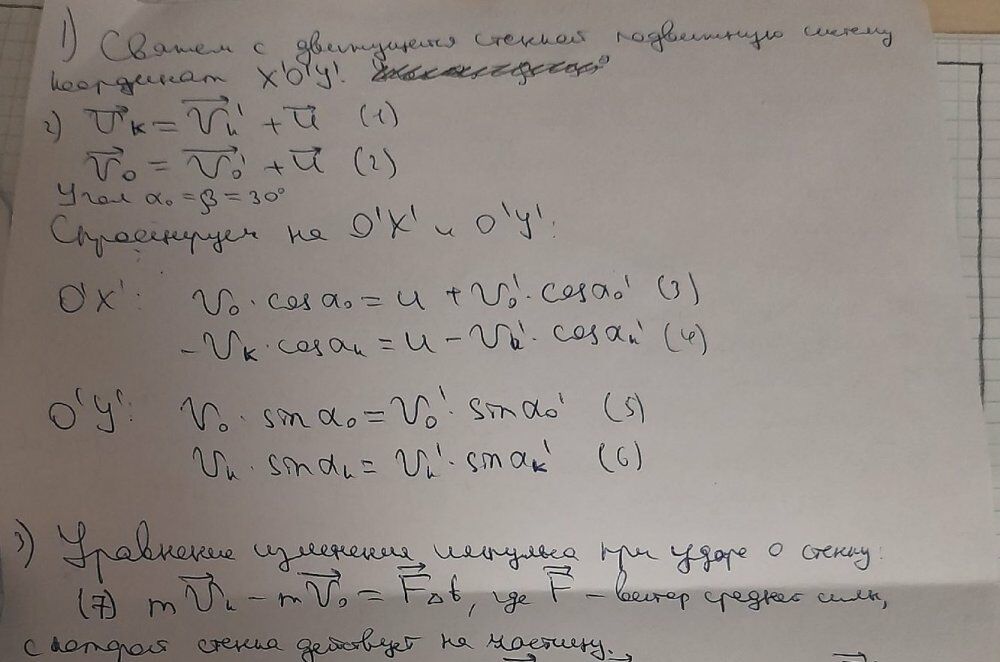 1) Свяжем с движущейся стенкой подвижную систему
координат X'O'Y'.
2) V⃗к = V⃗к' + u⃗ (1)
V⃗о = V⃗о' + u⃗ (2)
Угол α₀ = β = 30°
Спроецируем на O'X' и O'Y':
O'X': V₀ · cos α₀ = u + V₀' · cos α₀' (3)
- Vк · cos αк = u - Vк' · cos αк' (4)
O'Y': V₀ · sin α₀ = V₀' · sin α₀' (5)
Vк · sin αк = Vк' · sin αк' (6)
3) Уравнение изменения импульса при ударе о стенку:
(7) mV⃗к - mV⃗о = F⃗Δt, где F⃗ - вектор средней силы,
с которой стенка действует на частицу.